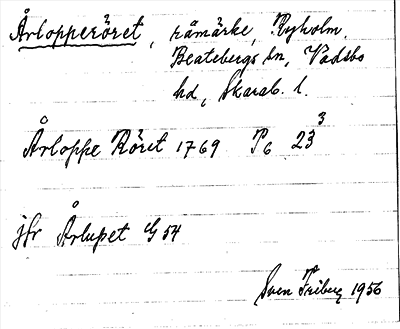 Årlopperöret, råmärke, Ryholm,
Beatebergs sn, Vadsbo
hd, Skarab. l.
Årloppe Röret 1769 P6 23³
jfr Årlupet G 54
Sven Friberg 1956